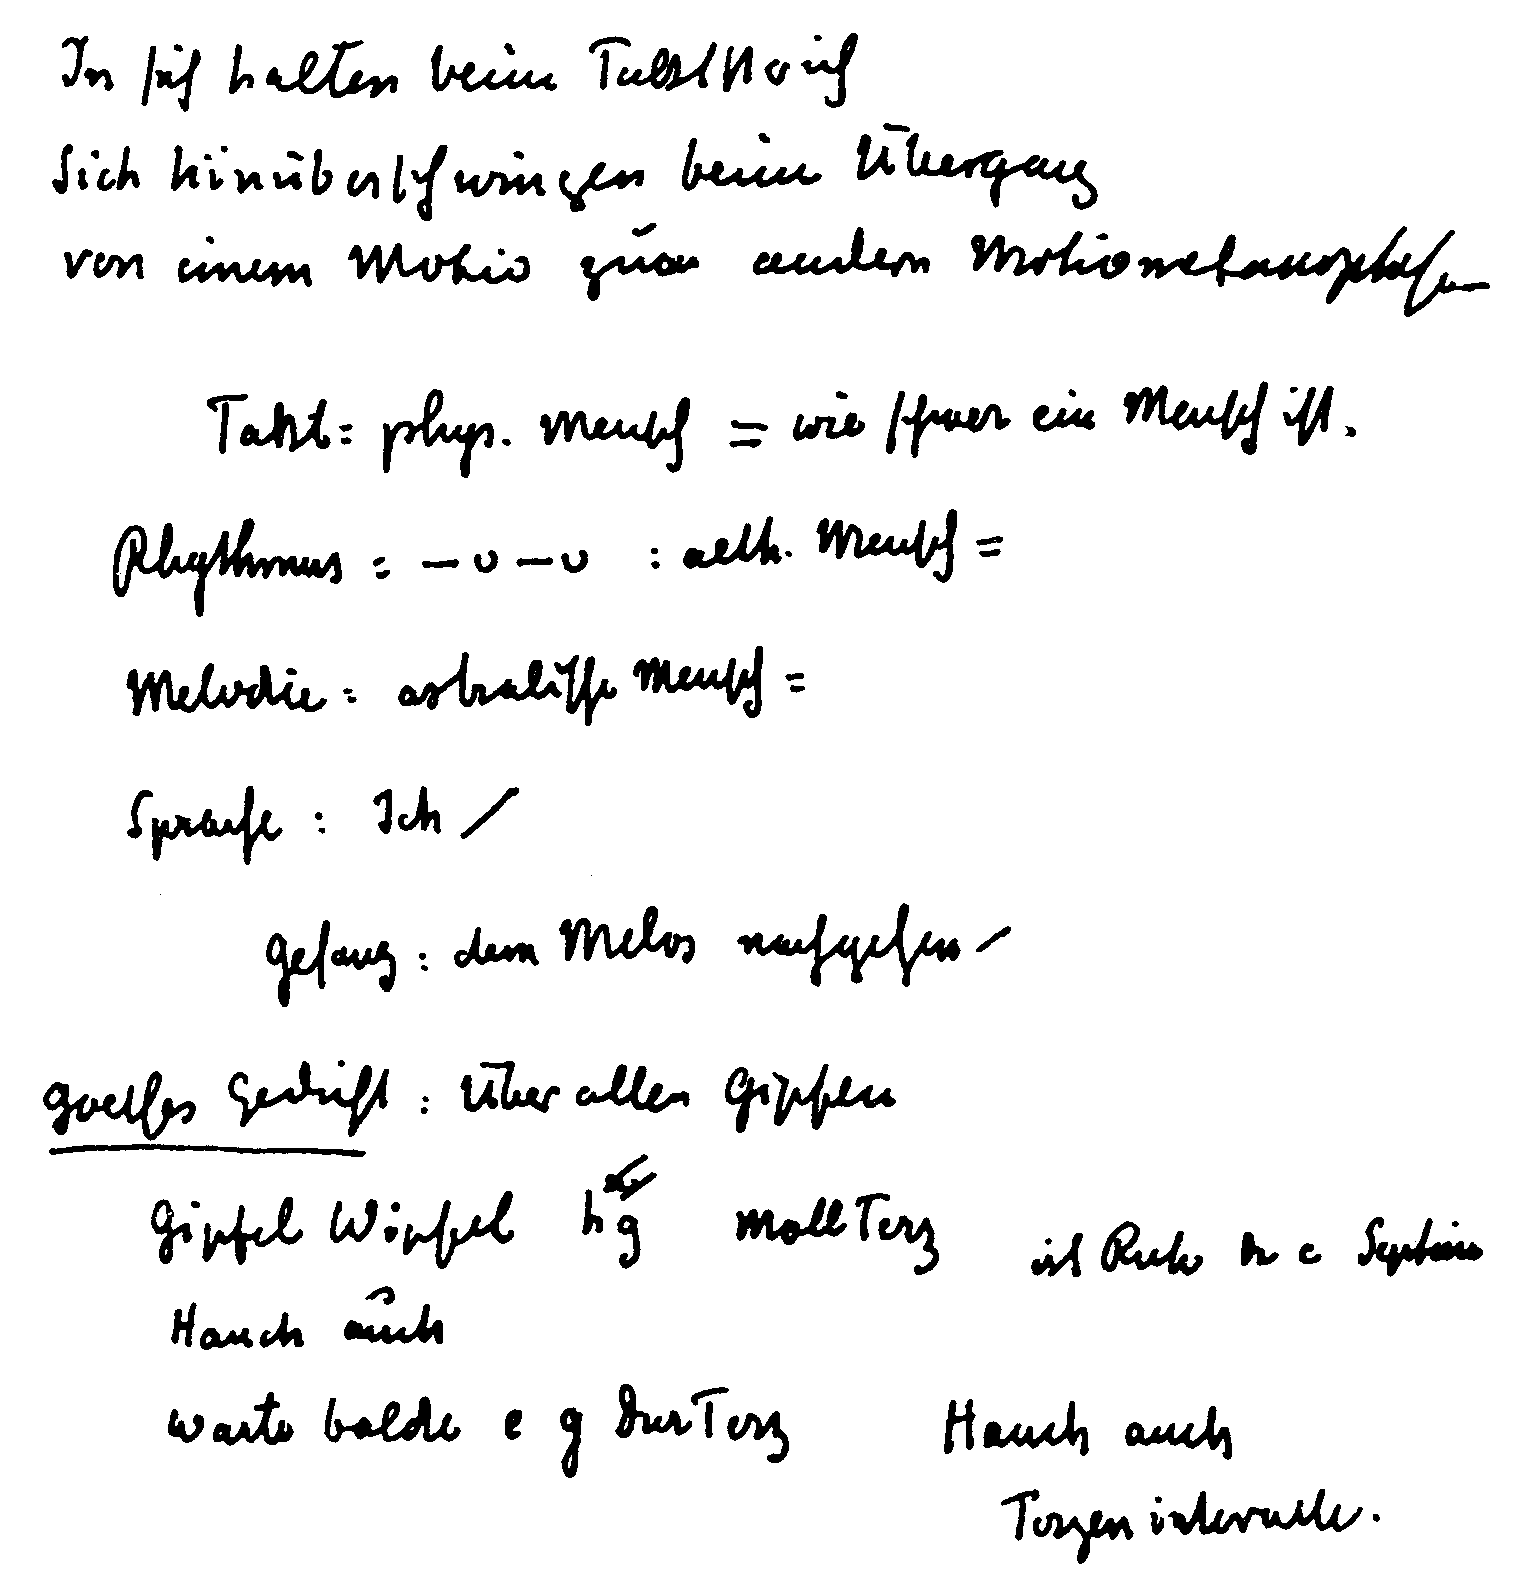 In sich halten beim Taktstrich
Sich hinüberschwingen beim Übergang
von einem Motiv zum andern Motivmetamorphosen
Takt = phys. Mensch = wie schwer ein Mensch ist.
Rhythmus = – ᴗ – ᴗ : aeth. Mensch =
Melodie = astralische Mensch =
Sprache : Ich /
Gesang : dem Melos nachgehen –
Goethes Gedicht : Über allen Gipfeln
Gipfel Wipfel h g Moll Terz ist Ruh h c Septime
Hauch auch
warte balde e g Dur Terz Hauch auch
Terzenintervalle.